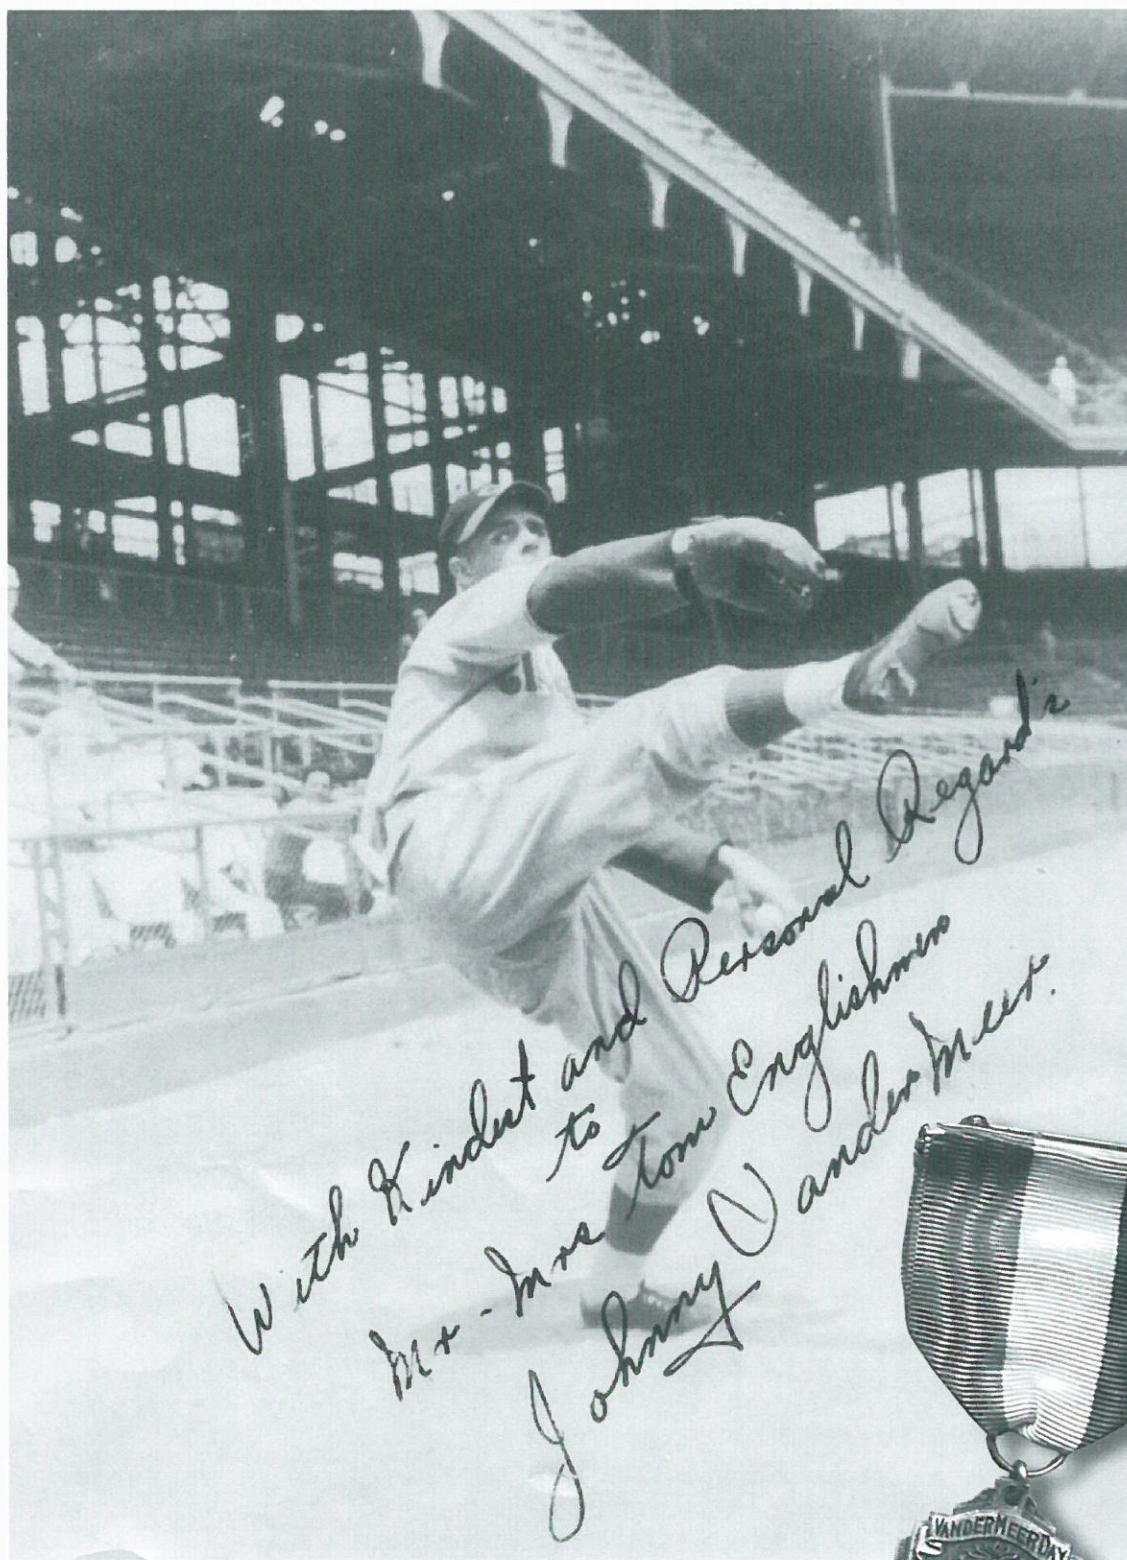 With Kindest and Personal Regard's
to
Mr - Mrs Tom Englishmen
Johnny Vander Meer.
VANDER MEER DAY